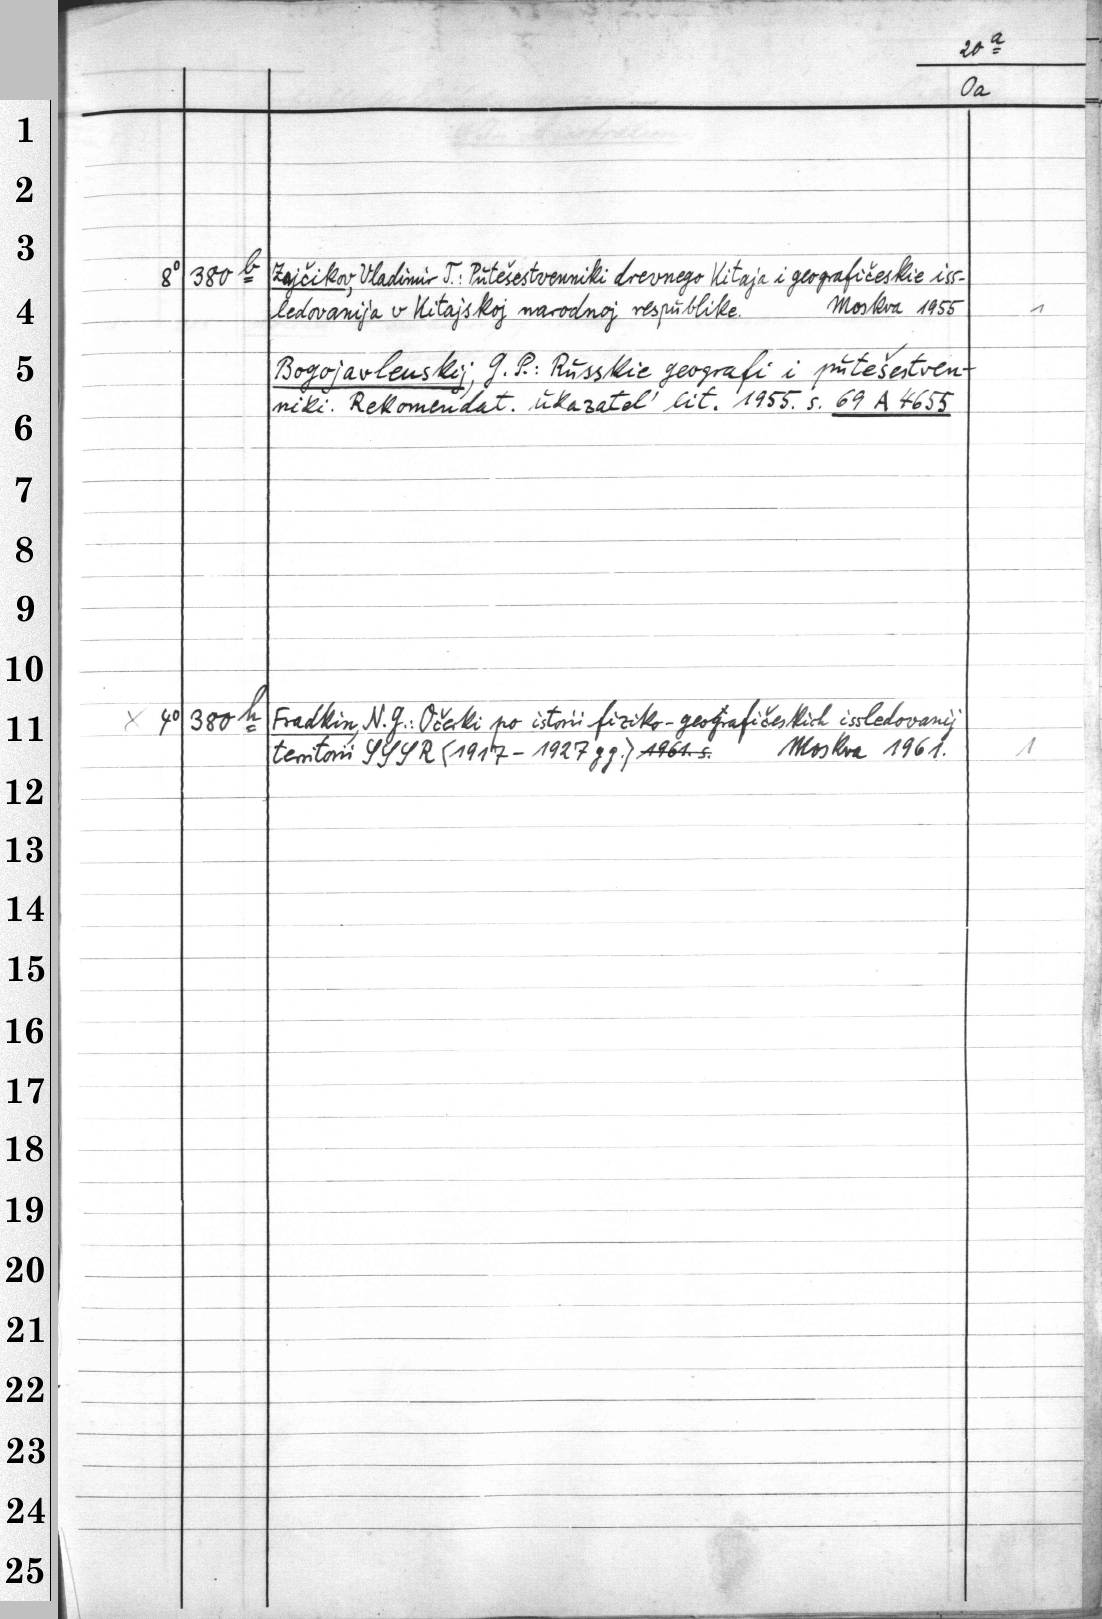 20 a
Oa
1
2
3
8° 380 b Zajčikov, Vladimir T.: Putešestvenniki drevnego Kitaja i geografičeskie iss-
4 ledovanija v Kitajskoj narodnoj respublike. Moskva 1955 1
5 Bogojavlenskij, G. P.: Russkie geografi i putešestven-
niki. Rekomendat. ukazatel' lit. 1955. s. 69 A 4655
6
7
8
9
10
11 x 4° 380 h Fradkin, N. G.: Očerki po istorii fiziko-geografičeskich issledovanij
territorii SSSR (1917-1927 gg.) 1961. s. Moskva 1961. 1
12
13
14
15
16
17
18
19
20
21
22
23
24
25